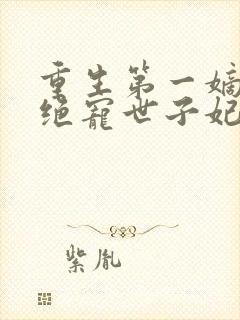 重生第一嫡
绝宠世子妃
紫胤